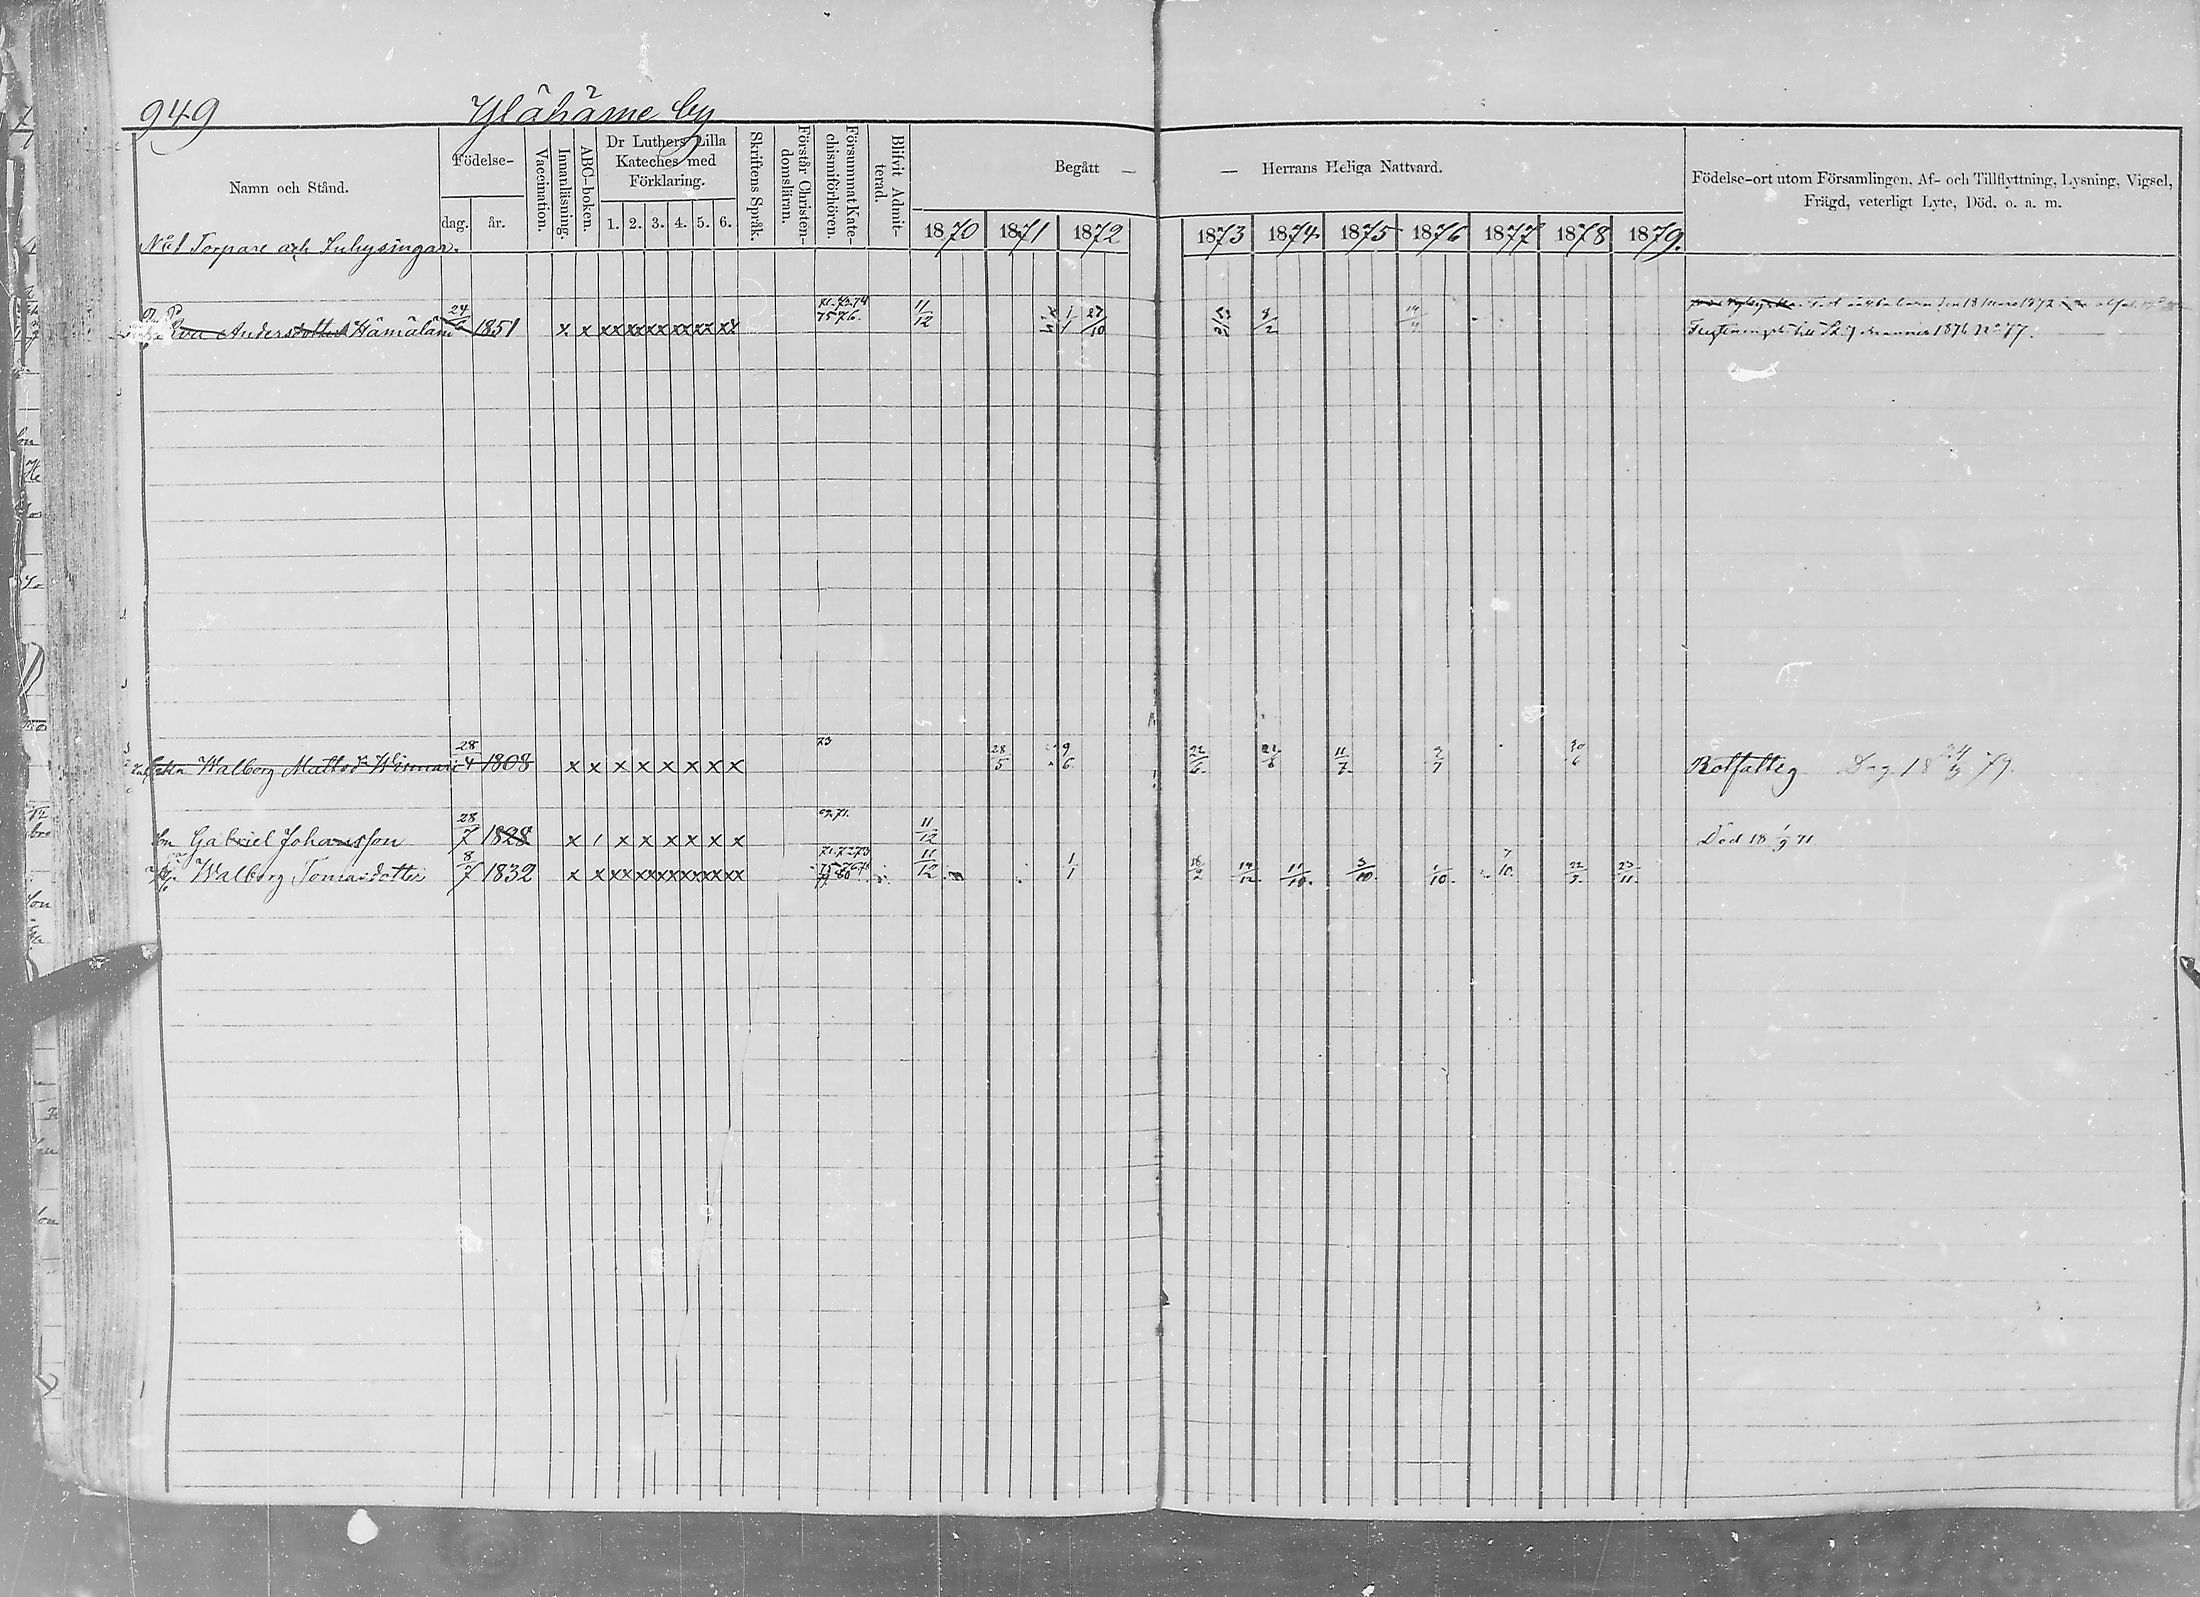 949 Ylähäme by
Namn och Stånd.
Födelse-
dag. år.
Vaccination.
Innanläsning.
ABC-boken.
Dr Luthers Lilla
Kateches med
Förklaring.
1. 2. 3. 4. 5. 6.
Skriftens Språk.
Förstår Christen-
domsläran.
Försummat Kate-
chismiförhören.
Blifvit Admit-
terad.
Begått — — Herrans Heliga Nattvard.
1870 1871 1872 1873 1874 1875 1876 1877 1878 1879.
Födelse-ort utom Församlingen, Af- och Tillflyttning, Lysning, Vigsel,
Frägd, veterligt Lyte, Död, o. a. m.
No 1 Torpare och Inhysingar.
Eva Andersdotter Hämäläin 24/6 1851 x x xx xx xx xx xx xx 71.72.74 75 76. 11/12 1/1 27/10 8/2
den 13 Mars 1872
till St. Johannes 1876 No 77.
Enkan Walborg Mattsdr 28/4 1808 x x x x x x x x 73 28/5 9/6 22/6 21/8 11/7 9/7 30/6 Rotfattig Dog 18 79.
Son Gabriel Johansson 28/7 1828 x / x x x x x x 11/12 Död 18 1/9 71
Walborg Tomasdotter 8/7 1832 x x xx xx xx xx xx xx 71.72 73 11/12 1/1 18/2 14/12 11/10 3/10 1/10 7/10 22/9 23/11